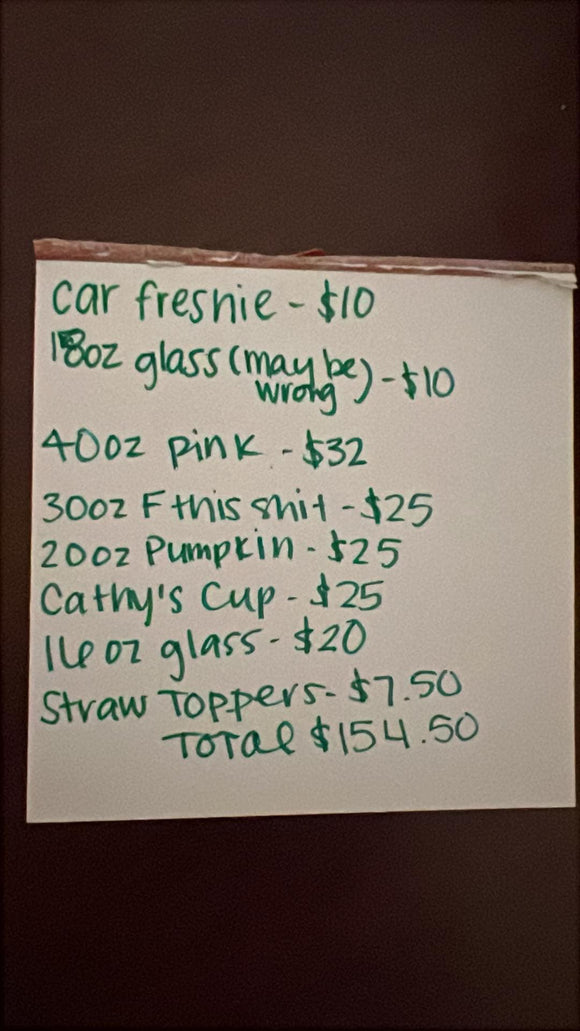 car freshie - $10
18oz glass (may be wrong) - $10
40oz pink - $32
30oz F this shit - $25
20oz Pumpkin - $25
Cathy's Cup - $25
16oz glass - $20
Straw Toppers - $7.50
Total $154.50